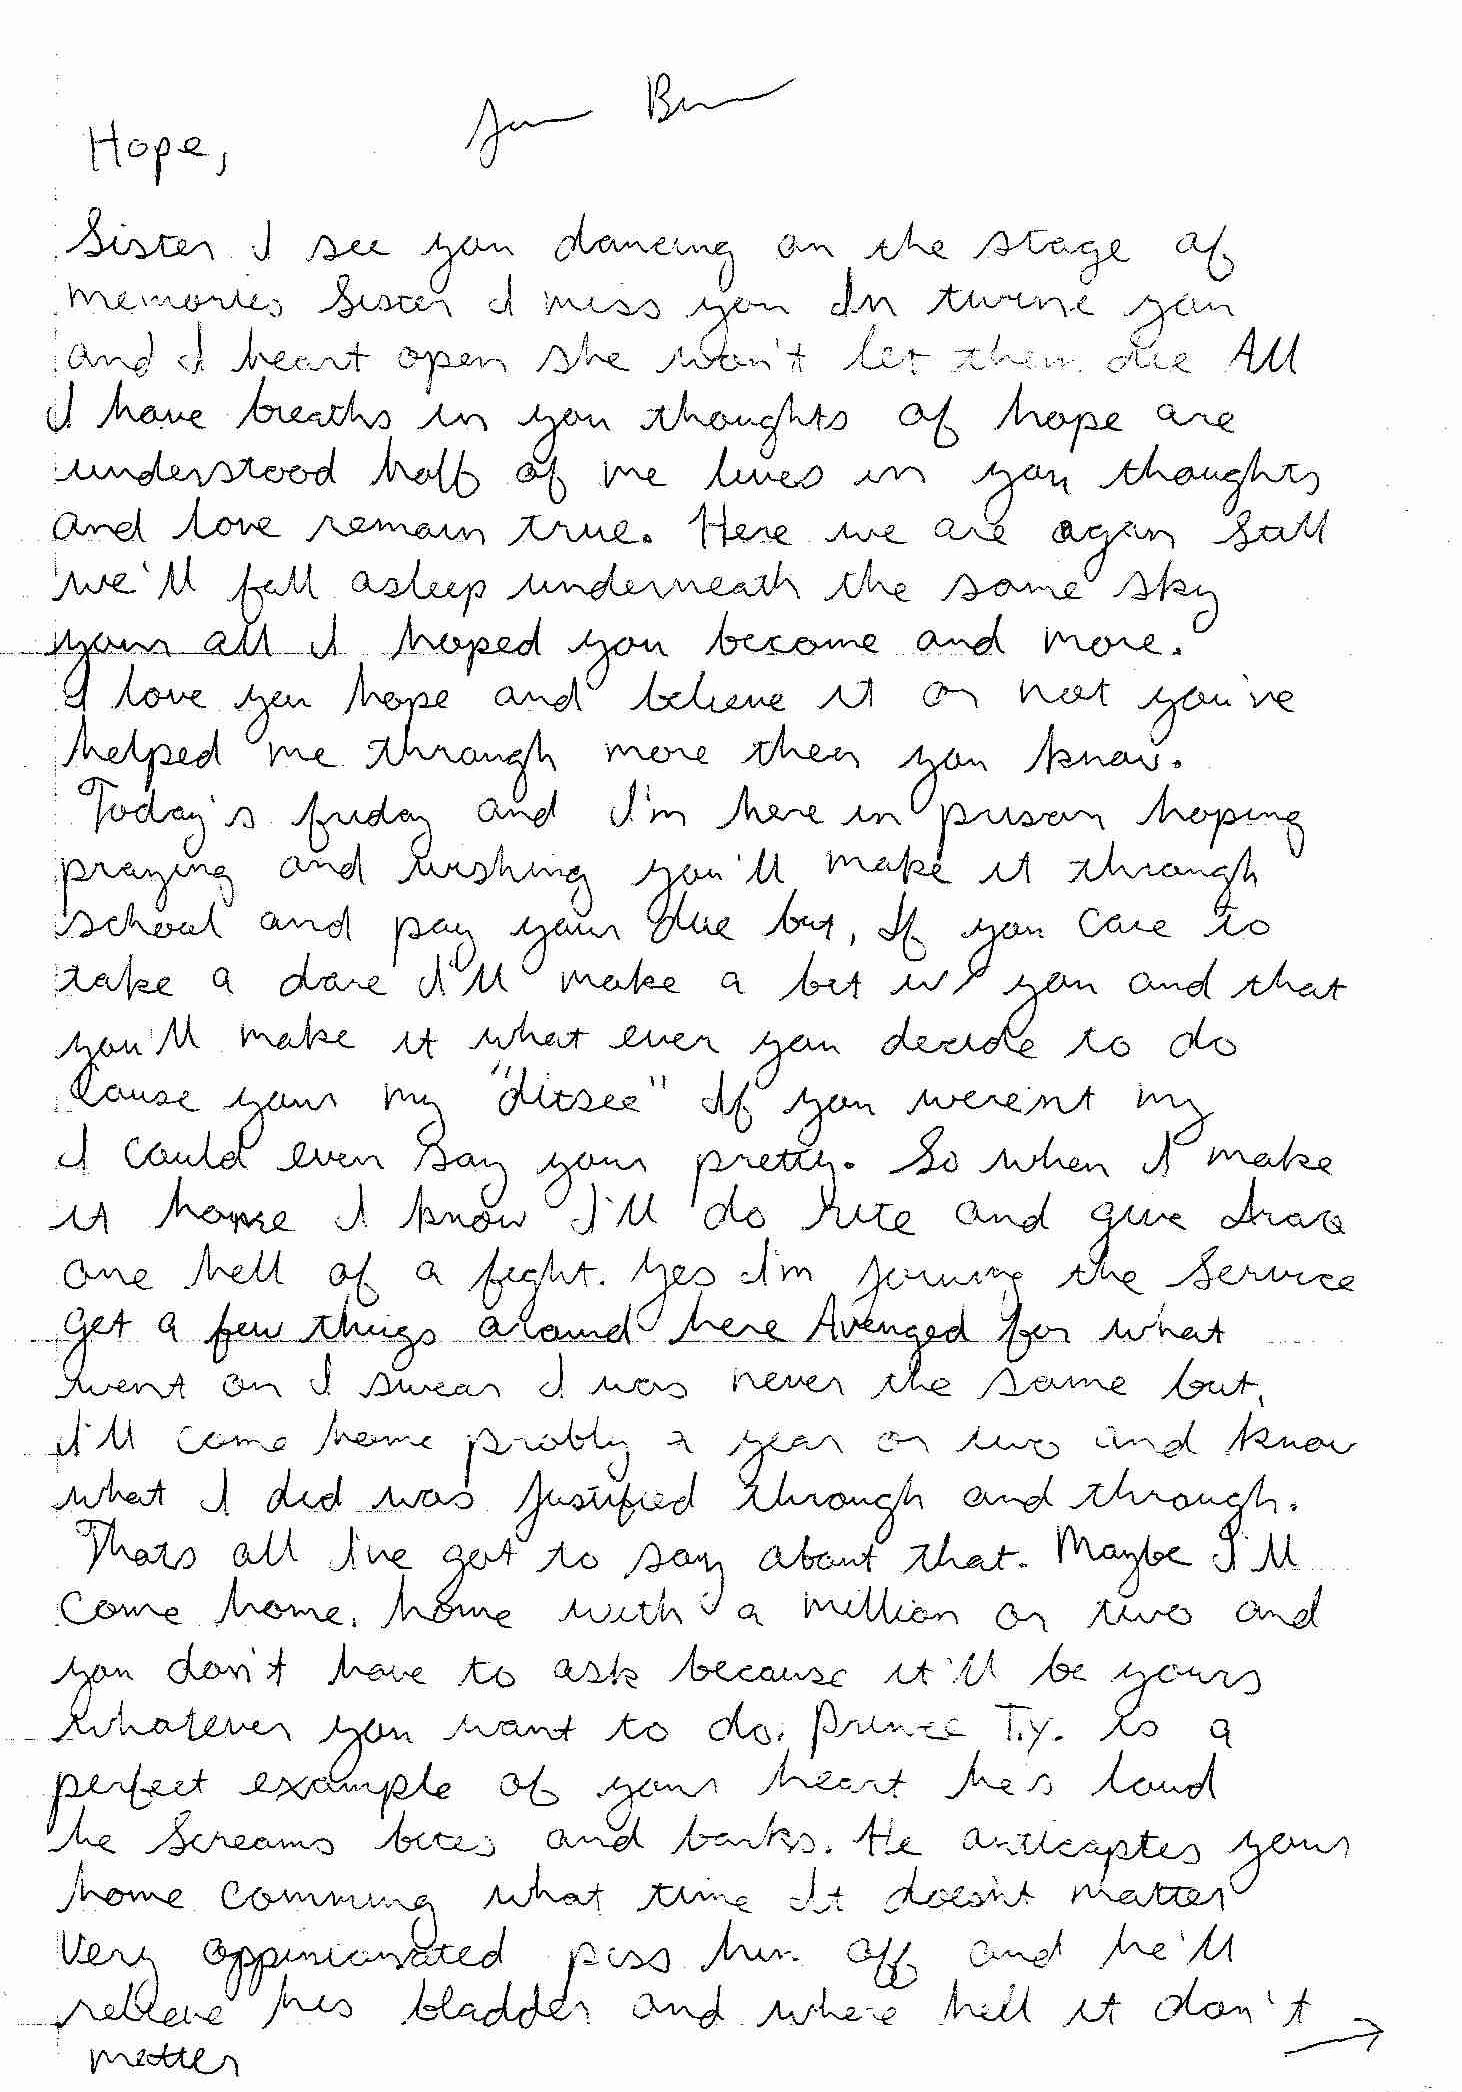 Hope,
Sister I see you dancing on the stage of
memories Sister I miss you In twine you
and I heart open she won't let them die All
I have breaths in you thoughts of hope are
understood half of me lives in you thoughts
and love remain true. Here we are agan Still
we'll fall asleep underneath the same sky
your all I hoped you become and more.
I love you hope and believe it or not you've
helped me through more then you know.
Today's friday and I'm here in prison hoping
praying and wishing you'll make it through
school and pay your due but, If you care to
take a dare I'll make a bet w/ you and that
you'll make it what ever you decide to do
cause your my "ditsee" If you weren't my
I could even say your pretty. So when I make
it home I know I'll do rite and give
one hell of a fight. Yes I'm joining the Service
get a few things around here Avenged for what
went on I swear I was never the same but,
I'll come home probly a year or two and know
what I did was Justified through and through.
Thats all I've got to say about that. Maybe I'll
come home. home with a million or two and
you don't have to ask because it'll be yours
whatever you want to do. Prince T.y. is a
perfect example of your heart he s loud
he Screams bites and barks. He anticaptes your
home comming what time It doesn't matter
Very oppinionated piss him off and he'll
relieve his bladder and where hell it don't
matter